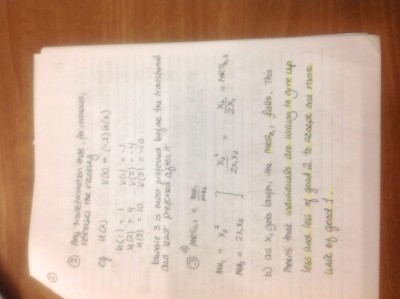 ②
② Any transformation that, for instance,
reverses the ranking
eg u(x) V(x) = (-1)u(x)
u(1) = 1 V(1) = -1
u(2) = 4 V(2) = -4
u(3) = 10 V(3) = -10
bundle 3 is most preferred before the transformed
and least preferred after it
③ a) MRS₂,₁ = MU₁/MU₂
MU₁ = X₂² ] X₂²/2X₁X₂ = X₂/2X₁ = MRS₂,₁
MU₂ = 2X₁X₂
b) as X₁ gets larger, the MRS₂,₁ falls. This
means that individuals are willing to give up
less and less of good 2 to accept one more
unit of good 1.